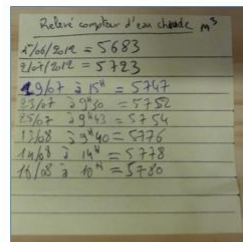 Relevé compteur d'eau chaude m³
1/06/2012 = 5683
2/07/2012 = 5723
19/07 à 15H = 5747
23/07 à 9H30 = 5752
25/07 à 9H43 = 5754
13/08 à 9H40 = 5776
14/08 à 14H = 5778
16/08 à 10H = 5780